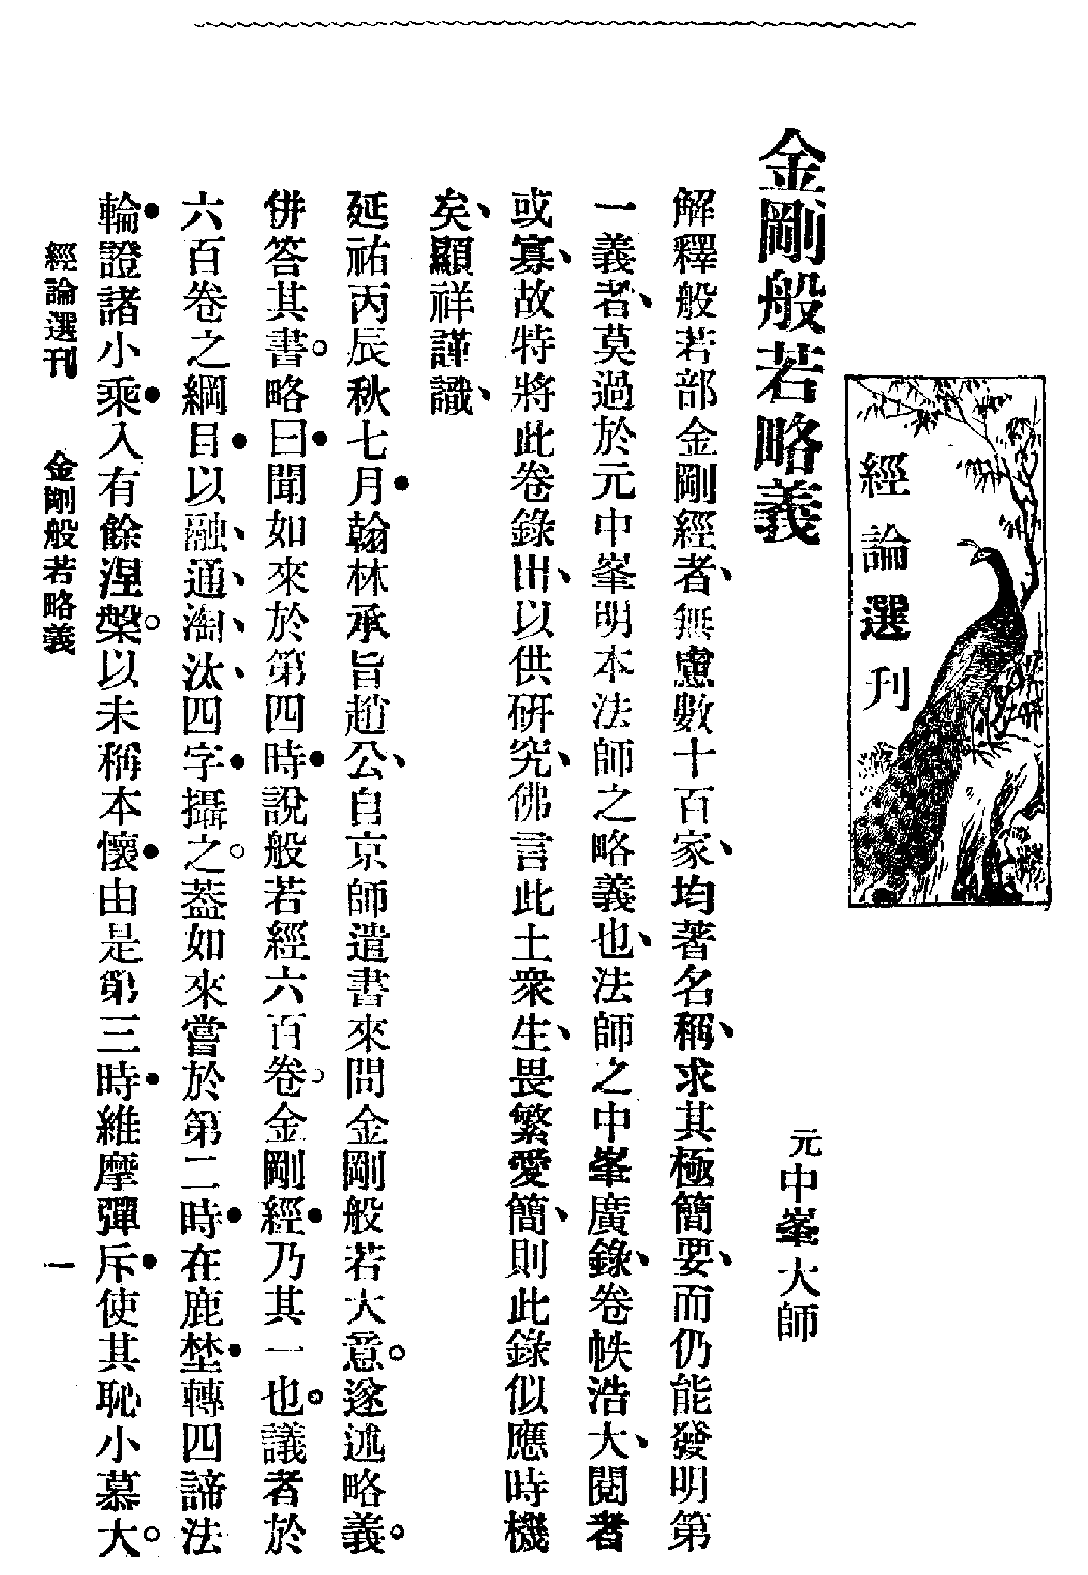 經論選刊
金剛般若略義
元中峯大師
解釋般若部金剛經者、無慮數十百家、均著名稱、求其極簡要、而仍能發明第
一義者、莫過於元中峯明本法師之略義也、法師之中峯廣錄、卷帙浩大、閱者
或寡、故特將此卷錄出、以供研究、佛言此土衆生、畏繁愛簡、則此錄似應時機
矣、顯祥謹識、
延祐丙辰秋七月•翰林承旨趙公、自京師遣書來問金剛般若大意。遂述略義。
併答其書。略曰•聞如來於第四時•說般若經六百卷。金剛經•乃其一也。議者於
六百卷之綱目•以融、通、淘、汰、四字•攝之。葢如來嘗於第二時•在鹿埜•轉四諦法
輪•證諸小乘•入有餘涅槃。以未稱本懷•由是第三時•維摩彈斥•使其恥小慕大。
經論選刊 金剛般若略義 一